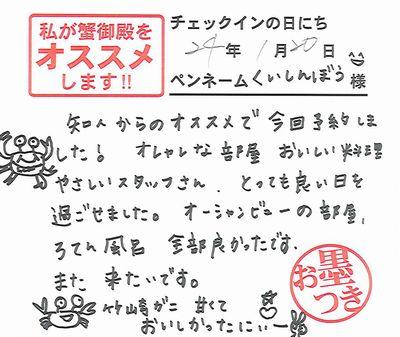 私が蟹御殿を
オススメ
します!!
チェックインの日にち
24年1月20日
ペンネームくいしんぼう様
知人からのオススメで今回予約しま
した! オシャレな部屋 おいしい料理
やさしいスタッフさん、とっても良い日を
過ごせました。オーシャンビューの部屋、
ろてん風呂 全部良かったです。
また 来たいです。
竹崎がに 甘くて
おいしかったにぃー
お墨
つき